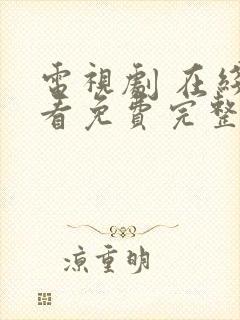 電視劇 在線
看免費完整
涼重明